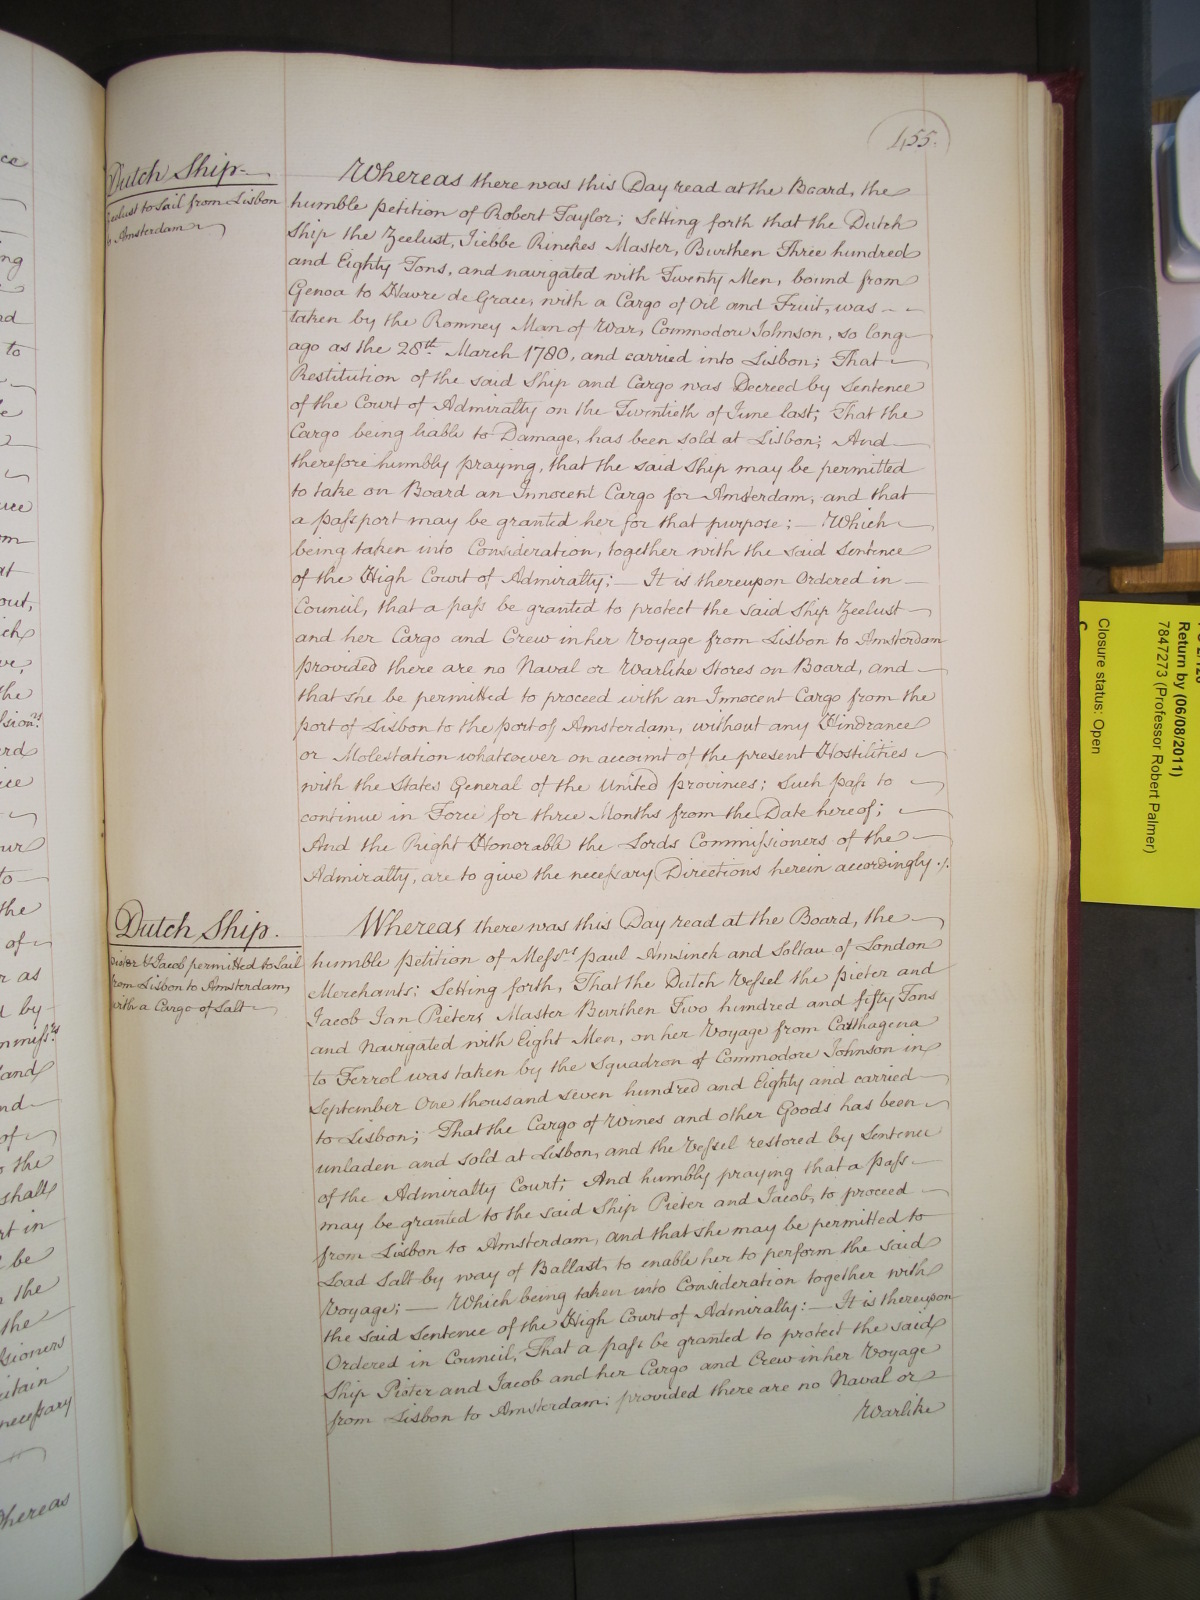 455.
Dutch Ship.
Zeelust to Sail from Lisbon
to Amsterdam
Whereas there was this Day read at the Board, the
humble petition of Robert Taylor; Setting forth that the Dutch
Ship the Zeelust, Tiebbe Rinckes Master, Burthen Three hundred
and Eighty Tons, and navigated with Twenty Men, bound from
Genoa to Havre de Grace, with a Cargo of Oil and Fruit, was
taken by the Romney Man of War, Commodore Johnson, so long
ago as the 28th. March 1780, and carried into Lisbon; That
Restitution of the said Ship and Cargo was Decreed by Sentence
of the Court of Admiralty on the Twentieth of June last; That the
Cargo being liable to Damage, has been sold at Lisbon; And
therefore humbly praying, that the said Ship may be permitted
to take on Board an Innocent Cargo for Amsterdam, and that
a passport may be granted her for that purpose; — Which
being taken into Consideration, together with the said Sentence
of the High Court of Admiralty; — It is thereupon Ordered in
Council, that a pass be granted to protect the said Ship Zeelust
and her Cargo and Crew in her Voyage from Lisbon to Amsterdam
provided there are no Naval or Warlike Stores on Board, and
that she be permitted to proceed with an Innocent Cargo from the
port of Lisbon to the port of Amsterdam, without any Hindrance
or Molestation whatsoever on account of the present Hostilities
with the States General of the United provinces; Such pass to
continue in Force for three Months from the Date hereof;
And the Right Honorable the Lords Commissioners of the
Admiralty, are to give the necessary Directions herein accordingly ./.
Dutch Ship.
Pieter & Jacob permitted to Sail
from Lisbon to Amsterdam,
with a Cargo of Salt
Whereas there was this Day read at the Board, the
humble petition of Messrs. paul Amsinck and Soltau of London
Merchants; Setting forth, That the Dutch Vessel the pieter and
Jacob Jan Pieters Master Burthen Two hundred and fifty Tons
and Navigated with Eight Men, on her Voyage from Carthagena
to Ferrol was taken by the Squadron of Commodore Johnson in
September One thousand seven hundred and Eighty and carried
to Lisbon; That the Cargo of Wines and other Goods has been
unladen and sold at Lisbon, and the Vessel restored by Sentence
of the Admiralty Court; And humbly praying that a pass
may be granted to the said Ship Pieter and Jacob, to proceed
from Lisbon to Amsterdam, and that she may be permitted to
Load Salt by way of Ballast, to enable her to perform the said
Voyage; — Which being taken into Consideration together with
the said Sentence of the High Court of Admiralty: — It is thereupon
Ordered in Council, That a pass be granted to protect the said
Ship Pieter and Jacob and her Cargo and Crew in her Voyage
from Lisbon to Amsterdam; provided there are no Naval or
Warlike
Return by (06/08/2011)
7847273 (Professor Robert Palmer)
Closure status: Open